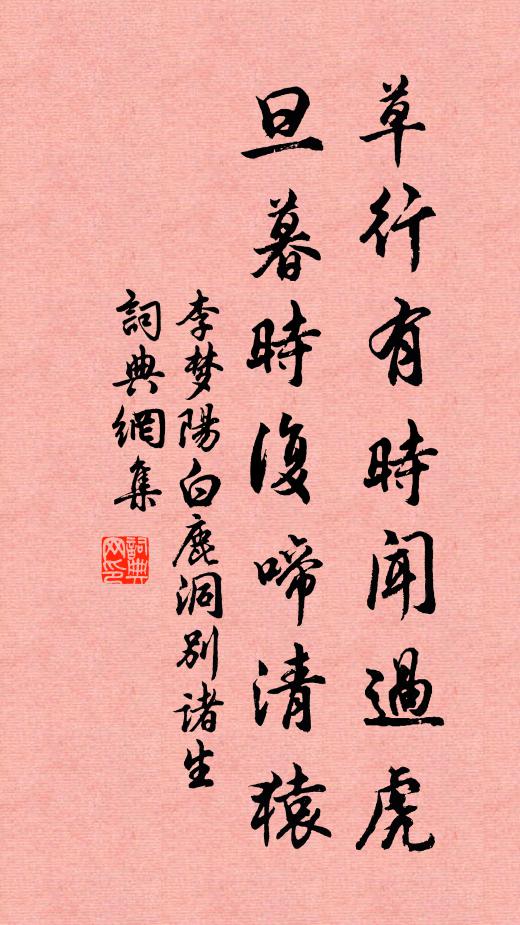 草行有時聞過虎
旦暮時復啼清猿
李梦陽白鹿洞别諸生
詞典網集
詞典
网印